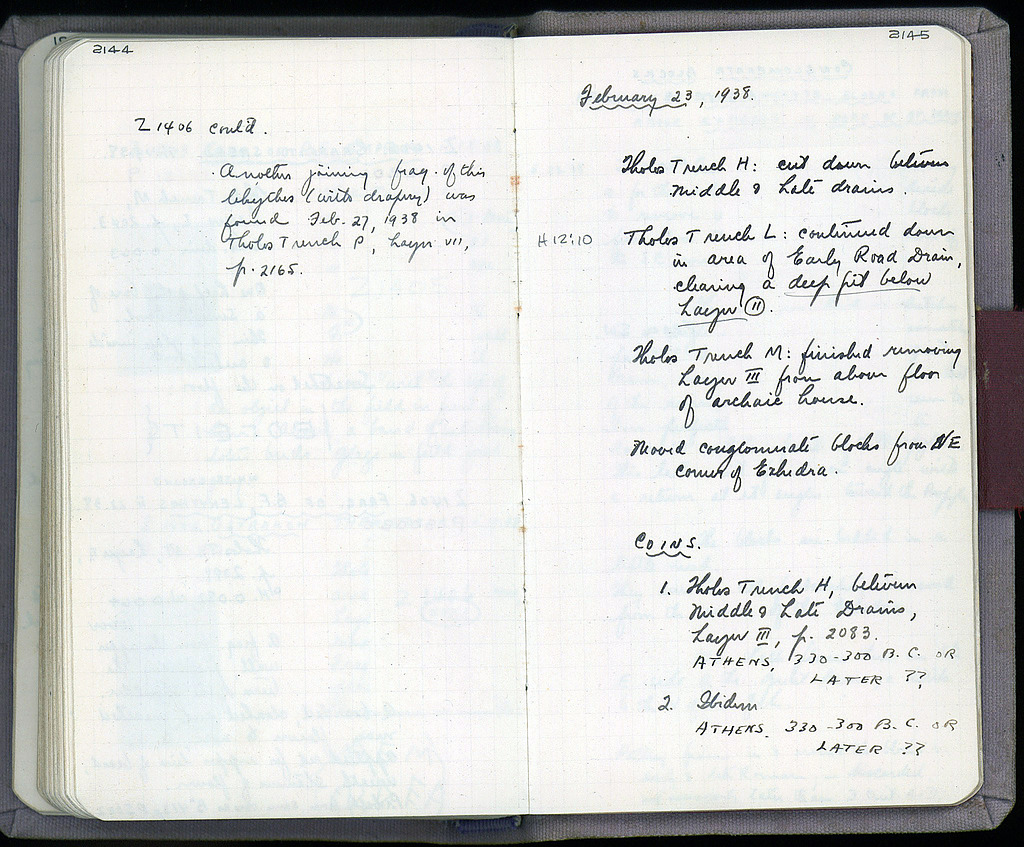 2144
Z 1406 cont'd.
Another joining frag. of this
lekythos (with drapery) was
found Feb. 27, 1938 in
Tholos Trench P, Layer VII,
p. 2165.
2145
February 23, 1938.
Tholos Trench H: cut down between
Middle & Late drains.
H 12:10
Tholos Trench L: continued down
in area of Early Road Drain,
clearing a deep pit below
Layer II.
Tholos Trench M: finished removing
Layer III from above floor
of archaic house.
Moved conglomerate blocks from NE
corner of Exhedra.
COINS.
1. Tholos Trench H, between
Middle & Late Drains,
Layer III, p. 2083.
ATHENS, 330-300 B.C. OR
LATER ??
2. Ibidem
ATHENS, 330-300 B.C. OR
LATER ??